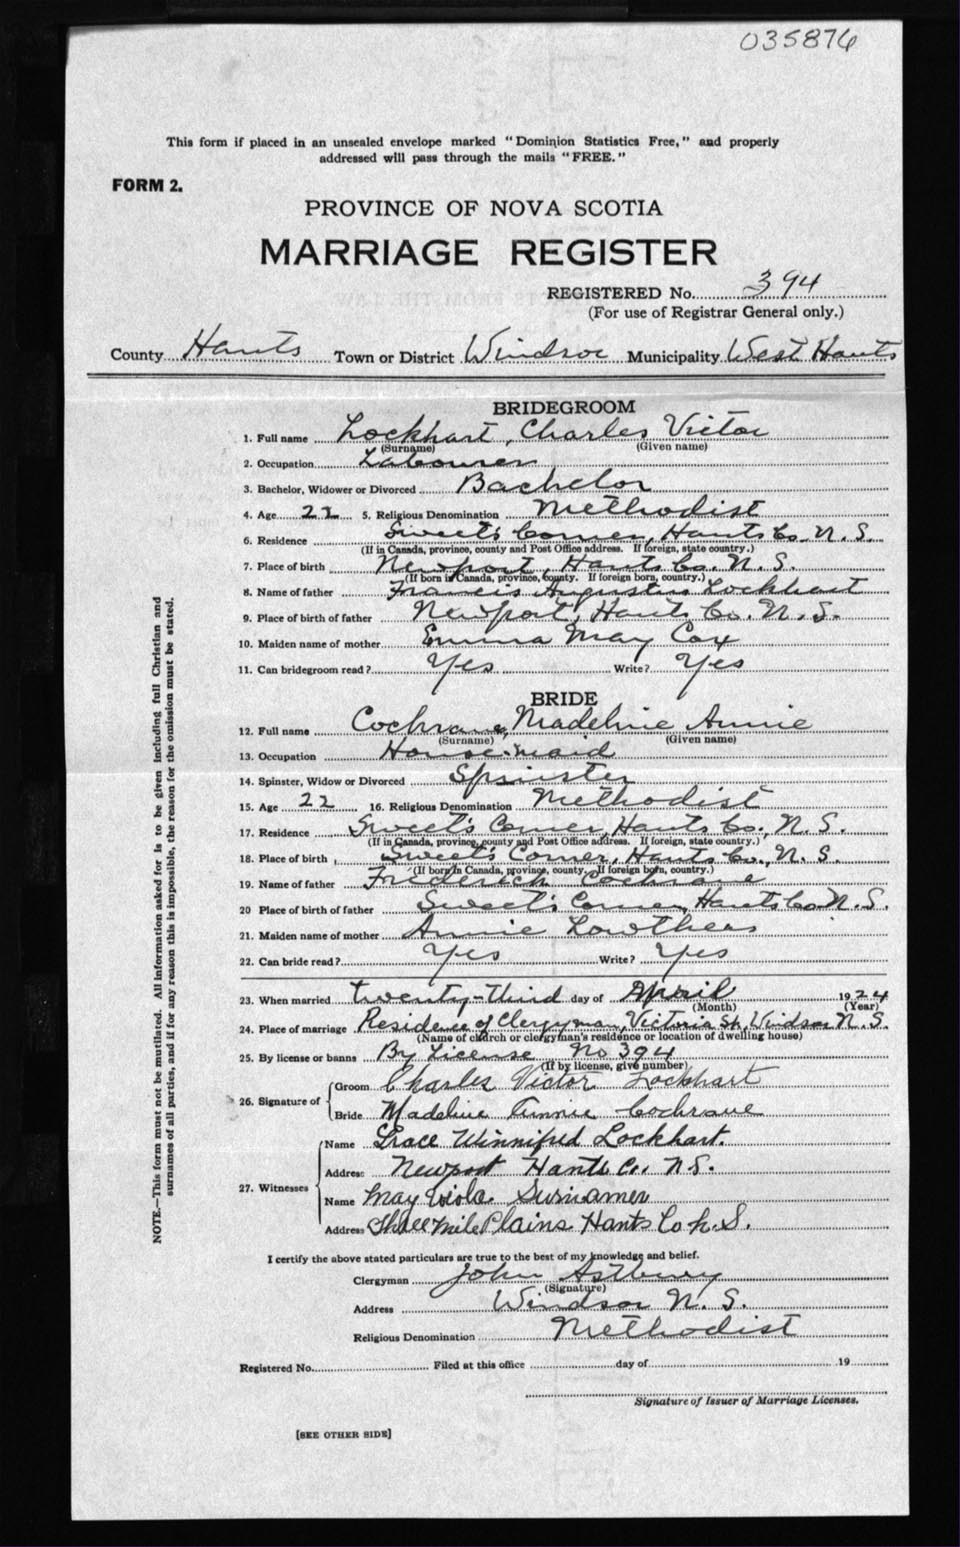 035876
This form if placed in an unsealed envelope marked "Dominion Statistics Free," and properly
addressed will pass through the mails "FREE."
FORM 2.
PROVINCE OF NOVA SCOTIA
MARRIAGE REGISTER
REGISTERED No. 394
(For use of Registrar General only.)
County Hants Town or District Windsor Municipality West Hants
BRIDEGROOM
1. Full name Lockhart, Charles Victor
(Surname) (Given name)
2. Occupation Labourer
3. Bachelor, Widower or Divorced Bachelor
4. Age 22 5. Religious Denomination Methodist
6. Residence Sweet's Corner, Hants Co. N. S.
(If in Canada, province, county and Post Office address. If foreign, state country.)
7. Place of birth Newport, Hants Co. N. S.
(If born in Canada, province, county. If foreign born, country.)
8. Name of father Francis Augustus Lockhart
9. Place of birth of father Newport, Hants Co. N. S.
10. Maiden name of mother Emma May Cox
11. Can bridegroom read? Yes Write? Yes
BRIDE
12. Full name Cochrane, Madeline Annie
(Surname) (Given name)
13. Occupation House-maid
14. Spinster, Widow or Divorced Spinster
15. Age 22 16. Religious Denomination Methodist
17. Residence Sweet's Corner, Hants Co., N. S.
(If in Canada, province, county and Post Office address. If foreign, state country.)
18. Place of birth Sweet's Corner, Hants Co., N. S.
(If born in Canada, province, county. If foreign born, country.)
19. Name of father Frederick Cochrane
20 Place of birth of father Sweet's Corner, Hants Co. N. S.
21. Maiden name of mother Annie Lowthers
22. Can bride read? Yes Write? Yes
23. When married twenty-third day of April 1924
(Month) (Year)
24. Place of marriage Residence of Clergyman, Victoria St., Windsor N. S.
(Name of church or clergyman's residence or location of dwelling house)
25. By license or banns By License No 394
(If by license, give number)
26. Signature of Groom Charles Victor Lockhart
Bride Madeline Annie Cochrane
27. Witnesses Name Grace Winnifred Lockhart.
Address Newport Hants Co. N. S.
Name May Viola
Address Three Mile Plains Hants Co N. S.
I certify the above stated particulars are true to the best of my knowledge and belief.
Clergyman John Astbury
(Signature)
Address Windsor N. S.
Religious Denomination Methodist
Registered No. Filed at this office day of 19
Signature of Issuer of Marriage Licenses.
[SEE OTHER SIDE]
NOTE.—This form must not be mutilated. All information asked for is to be given including full Christian and
surnames of all parties, and if for any reason this is impossible, the reason for the omission must be stated.